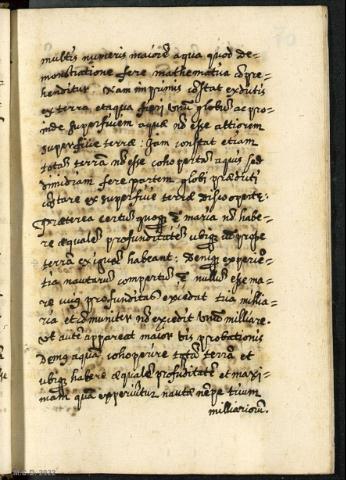 multis numeris maiorē aqua quod de-
monstratione fere mathematica cōpre-
henditur. Nam inprimis cōstat ex dictis
ex terra et aqua fieri unū globū ac pro-
inde superficiem aquæ nō esse altiorem
superficie terræ: Iam constat etiam
totā terrā nō esse cohopertā aquis sed
dimidiam fere partem globi prædicti
cōstare ex superficie terræ discooperte:
Præterea certū quoq; ē maria nō habe-
re æqualē profunditatē ubiq; cū prope
terrā exiguā habeant: Deniq; experiē-
tia nautarū compertū ē nullū esse ma-
re cuius profunditas excedat tria millia-
ria et cōmuniter nō excedit unū milliare.
Ut autē appareat maior vis probationis
Demꝰ aquā cohoperire totā terrā et
ubiq; habere æqualē profūditatē et maxi-
mam quā experiūtur nautæ nēpe trium
milliariorū.